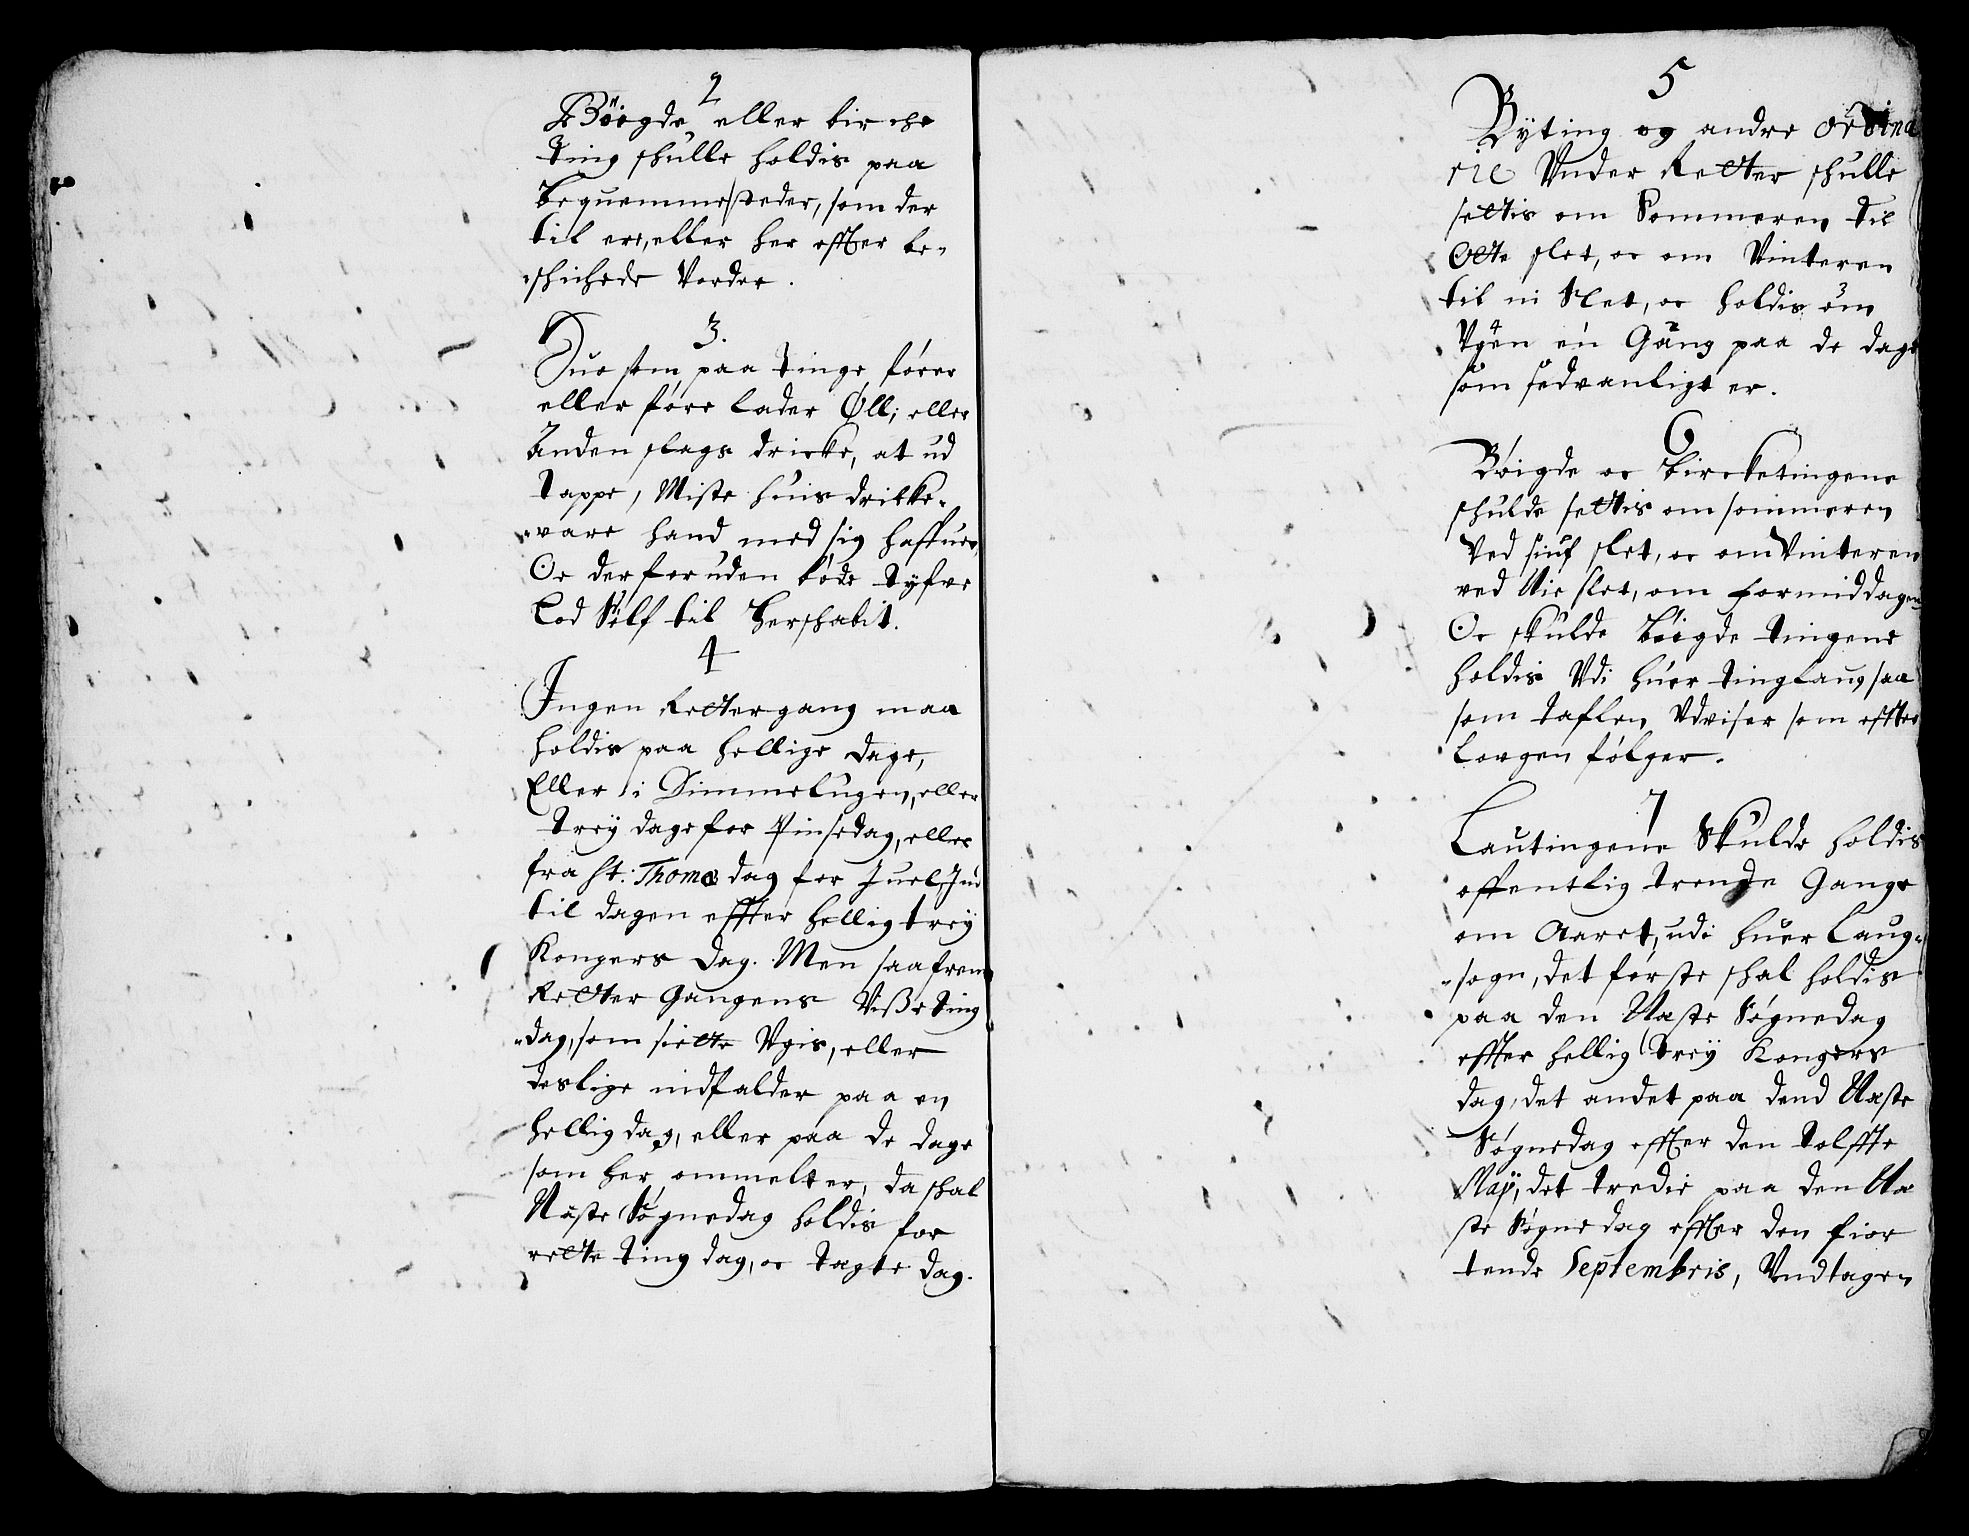 2
Böigde eller birche
ting schulle holdis paa
beqvemme steder, som der
til ere, eller her effter be-
schichede Vorder.
3.
Huo som paa tinge fører
eller føre lader Øll, eller
anden slags dricke, at ud
tappe, Miste huis drikke-
vare hand med sig haffuer,
Oc der foruden bøde tyfve
Lod Sølf til herschabit.
4
Ingen Rettergang maa
holdis paa hellige dage,
Eller i Dimmelugen, eller
trey dage for Pinsedag, eller
fra St. Thomæ dag for Juel, Ind
til dagen effter hellig trey
Kongers Dag. Men saafrem
Retter Gangens Visse ting
dag, som siette Vgis, eller
deslige indfalder paa en
hellig dag, eller paa de dage
som her ommelt er, da schal
Næste Søgnedag holdis for
rette ting dag, oc tægte dag.
5
Byting og andre ordina
rie Under Retter schulle
settis om Sommeren til
Otte slet, oc om Vinteren
til ni Slet, oc holdis om
Vgen en Gang paa de dage
som sedvanligt er.
6
Böigde oc bircketingene
schulde settis om sommeren
Ved siuf slet, oc om Vinteren
ved Nie slet, om formiddagen
Oc skulde böigde tingene
holdis Vdi huer tinglaug saa
som taflen Vdviser som effter
Lovgen følger.
7
Lautingene Skulde holdis
offentlig trende Gange
om Aaret, udi huer Laug-
sogn, det første schal holdis
paa den Næste Søgnedag
effter hellig trey Kongers
dag, det andet paa dend Næste
Søgnedag effter den tolffte
May, det tredie paa den Næ
ste Søgnedag effter den fior
tende Septembris, Undtagen